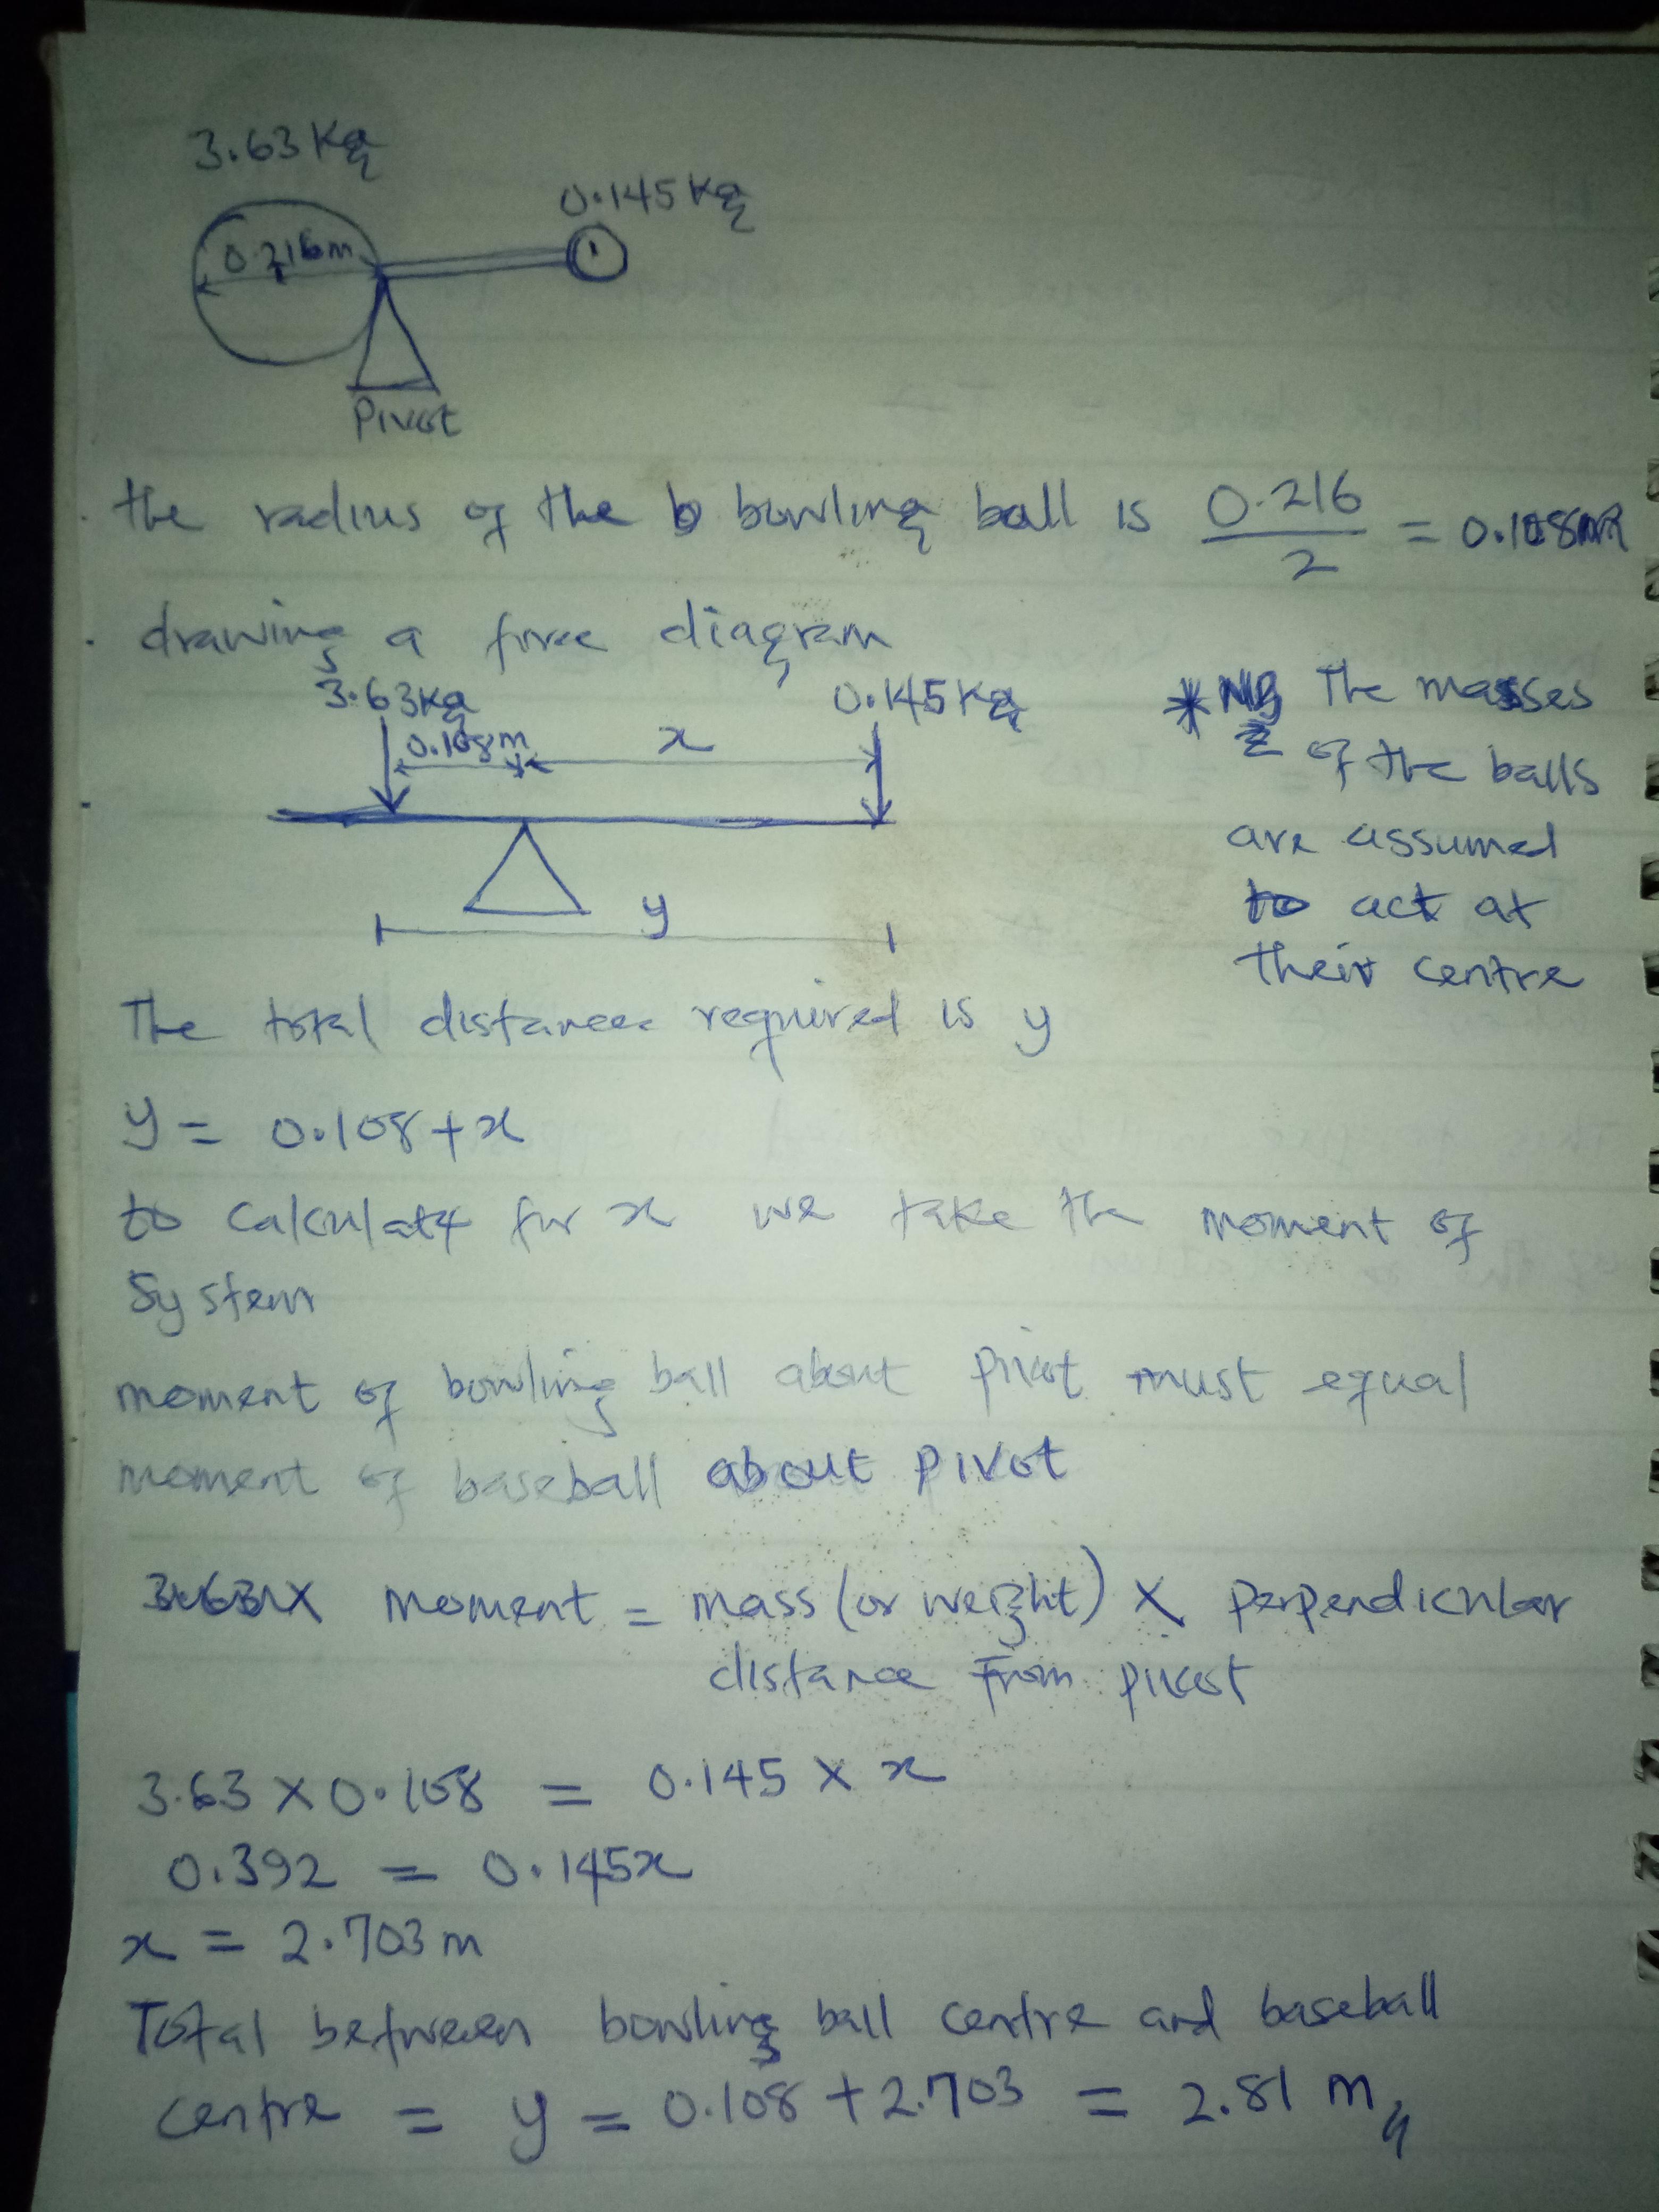 3.63 Kg
0.145 Kg
0.216m
Pivot
the radius of the bowling ball is 0.216/2 = 0.108m
. drawing a force diagram
3.63kg
0.145kg
0.108m
x
* NB The masses
of the balls
are assumed
to act at
their centre
y
The total distance required is y
y = 0.108 + x
to calculate for x we take the moment of
System
moment of bowling ball about pivot must equal
moment of baseball about pivot
moment = mass (or weight) X perpendicular
distance from pivot
3.63 X 0.108 = 0.145 X x
0.392 = 0.145x
x = 2.703 m
Total between bowling ball centre and baseball
centre = y = 0.108 + 2.703 = 2.81 m